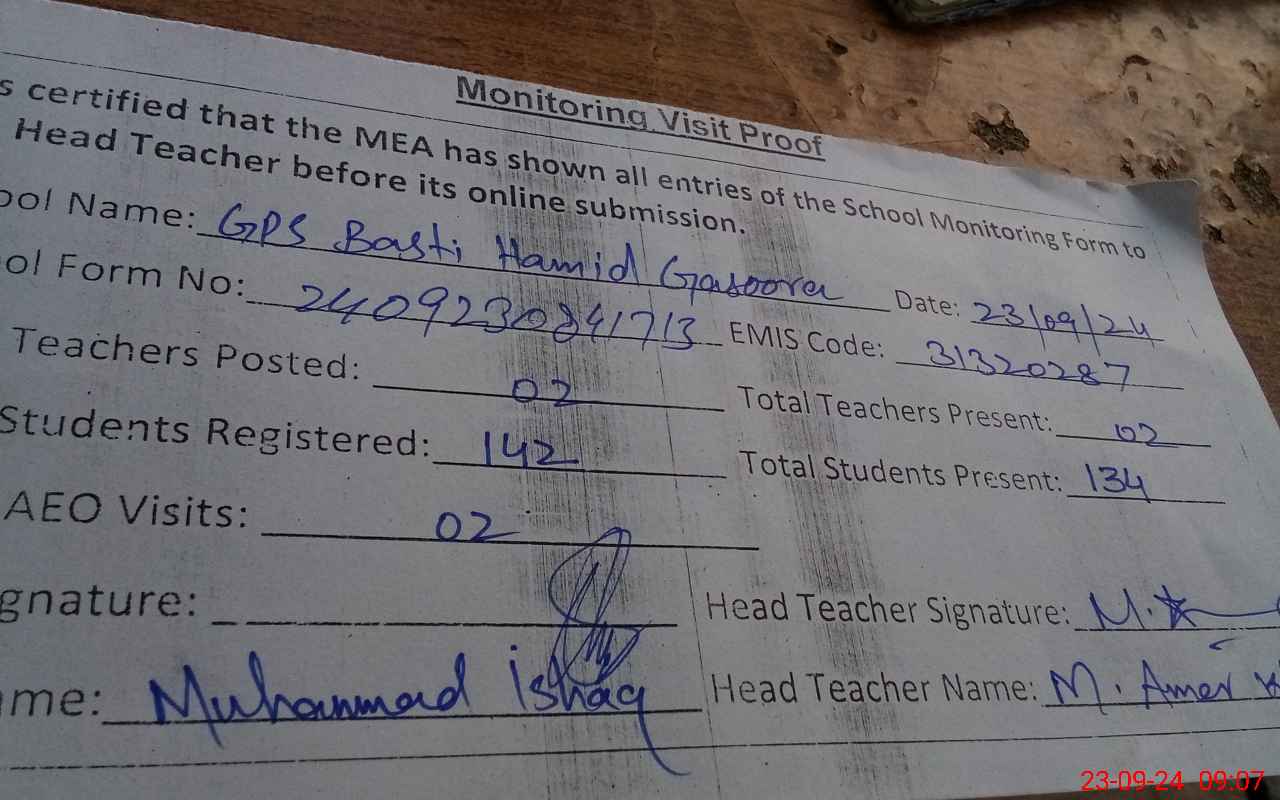 Monitoring Visit Proof
s certified that the MEA has shown all entries of the School Monitoring Form to
Head Teacher before its online submission.
ool Name: GPS Basti Hamid Gasoora Date: 23/09/24
ol Form No: 2409230841713 EMIS Code: 31320287
Teachers Posted: 02 Total Teachers Present: 02
Students Registered: 142 Total Students Present: 134
AEO Visits: 02
gnature: Head Teacher Signature:
me: Muhammad Ishaq Head Teacher Name: M. Amer
23-09-24 09:07